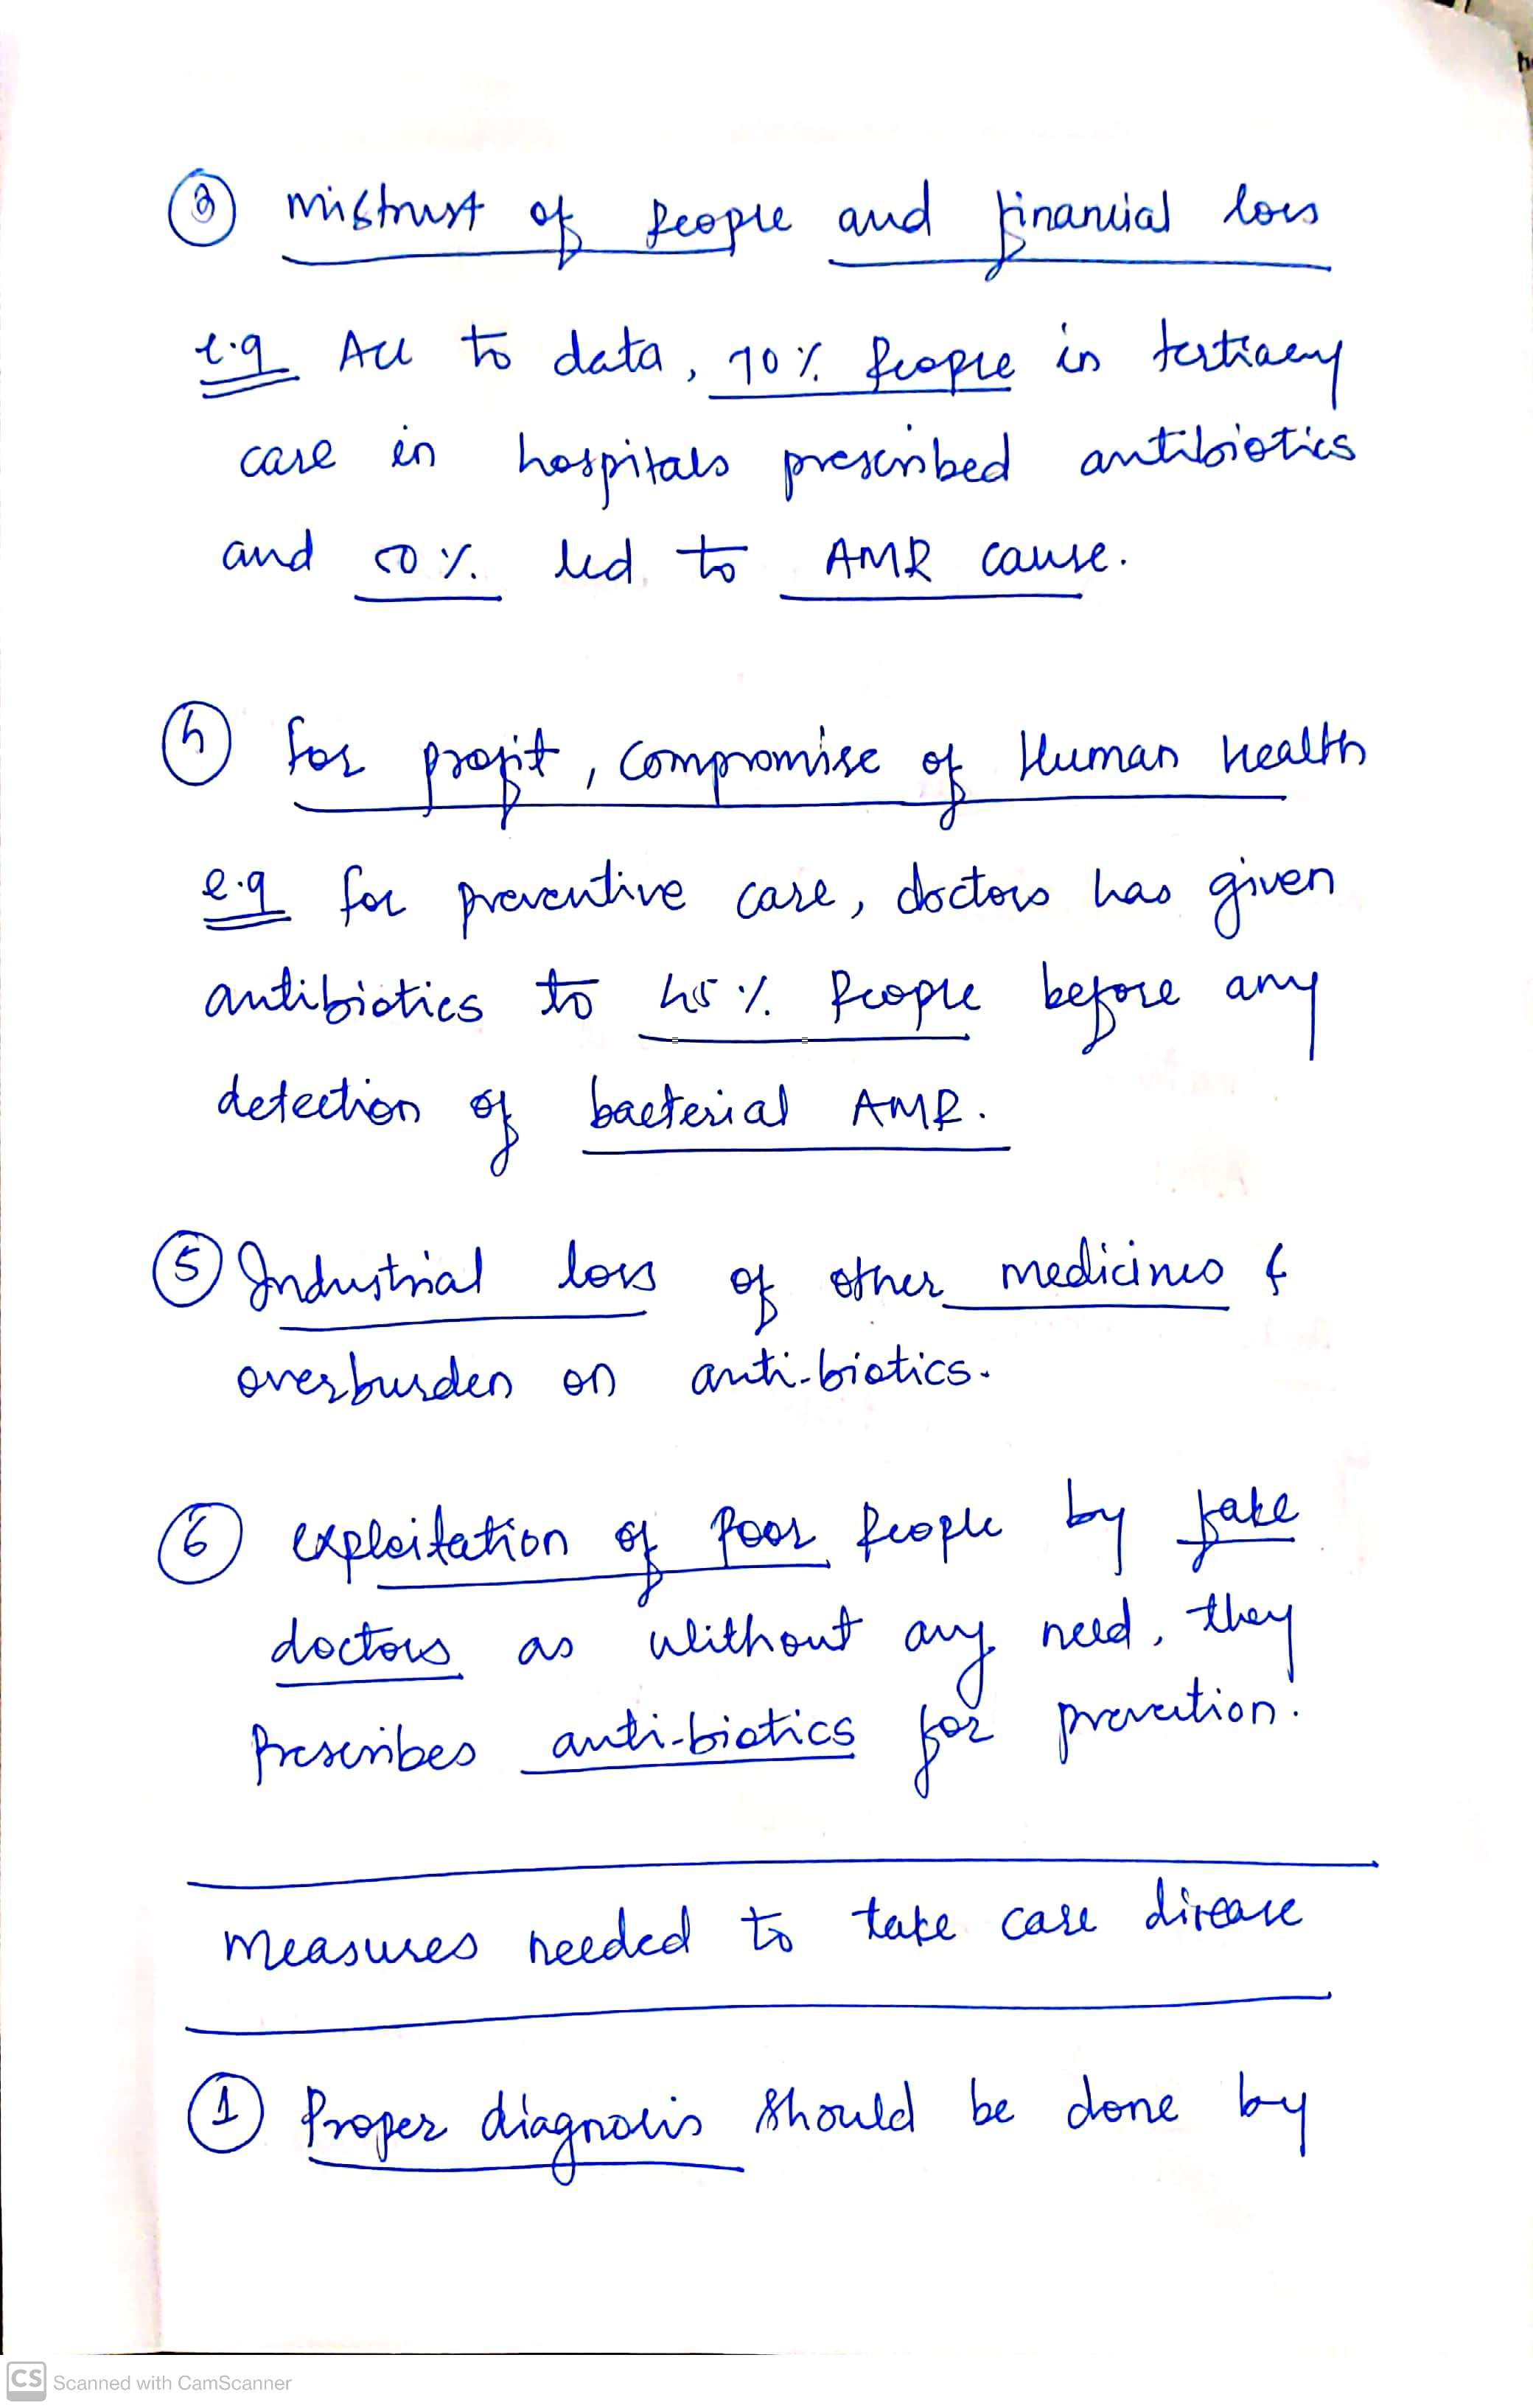 ③ mistrust of people and financial loss
e.g Acc to data, 70% people in tertiary
care in hospitals prescribed antibiotics
and 50% led to AMR cause.
④ for profit, compromise of Human health
e.g for preventive care, doctors has given
antibiotics to 45% people before any
detection of bacterial AMR.
⑤ Industrial loss of other medicines &
overburden on anti-biotics.
⑥ exploitation of poor people by fake
doctors as without any need, they
prescribes anti-biotics for prevention.
Measures needed to take care disease
① Proper diagnosis should be done by
CS Scanned with CamScanner